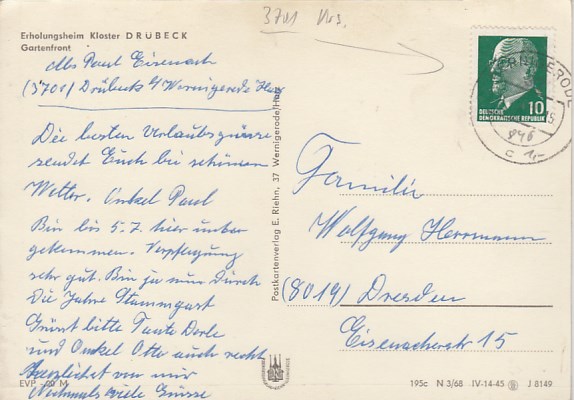 3701 Wrs.
Erholungsheim Kloster DRÜBECK
Gartenfront
Abs Paul Eisenach
(3701) Drübeck b/ Wernigerode Harz
Die besten Urlaubsgrüsse
sendet Euch bei schönem
Wetter. Onkel Paul
Bin bis 5.7. hier
gekommen. Verpflegung
sehr gut. Bin ja nun durch
die Jahre Stammgast
Grüsst bitte Tante Dorle
und Onkel Otto auch recht
herzlichst von mir
Nochmals viele Grüsse
EVP -,20 M
Postkartenverlag E. Riehn, 37 Wernigerode/Harz
WERNIGERODE
10
DEUTSCHE
DEMOKRATISCHE REPUBLIK
Familie
Wolfgang Herrmann
(8019) Dresden
Eisenacherstr 15
195c N 3/68 IV-14-45 J 8149